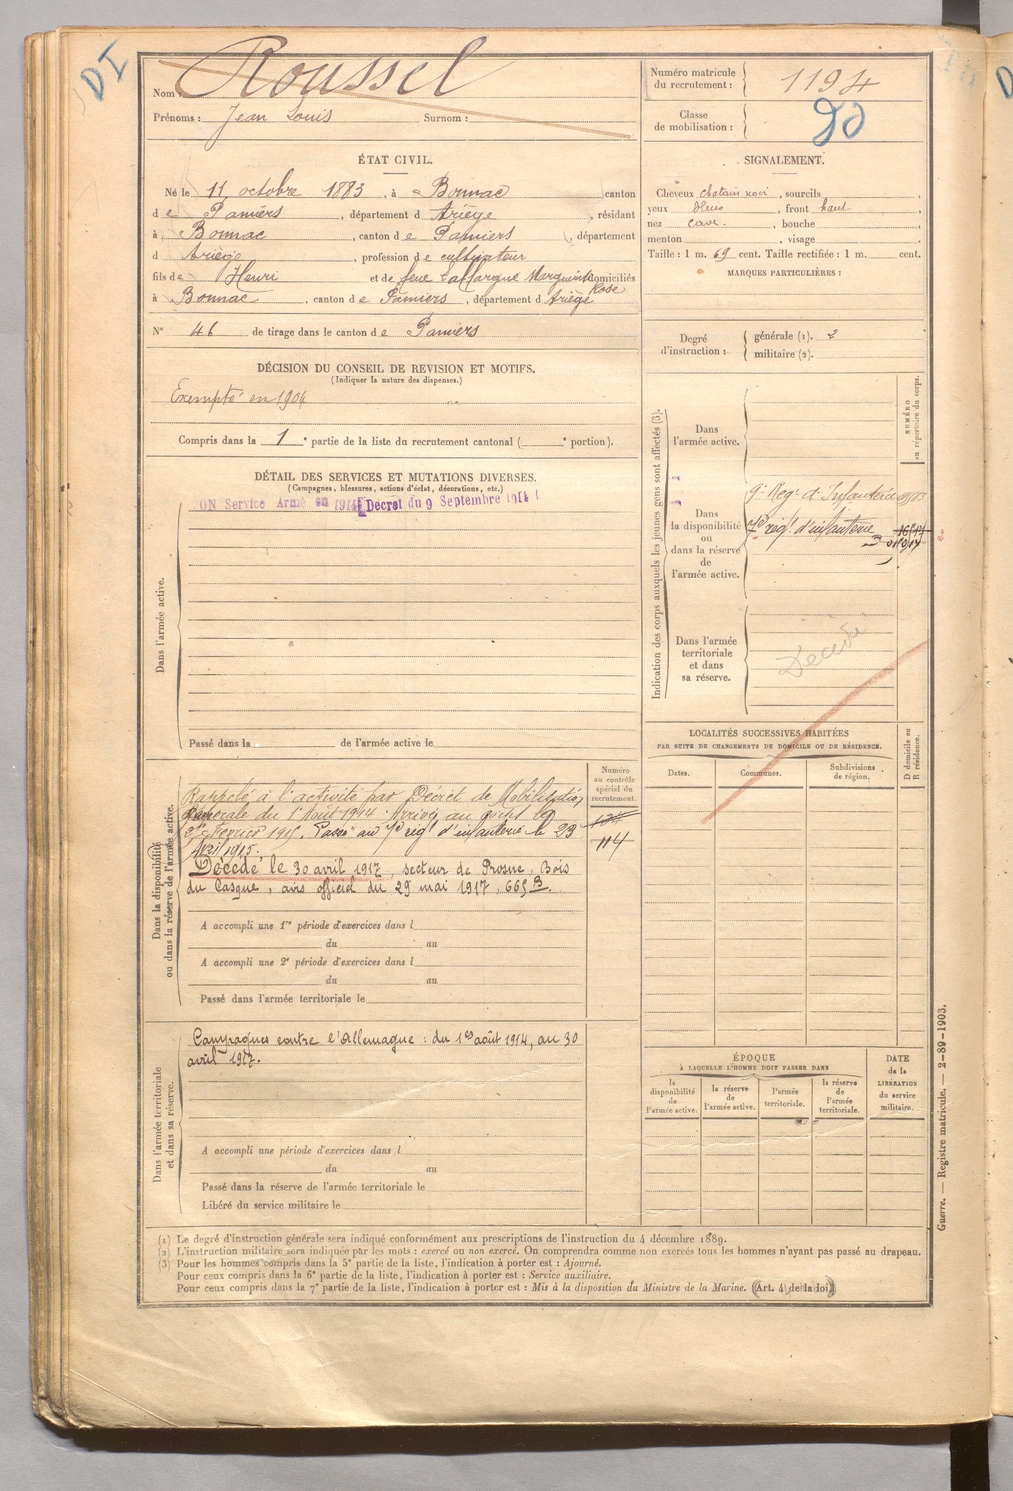 DI
Nom : Roussel
Prénoms : Jean Louis Surnom :
Numéro matricule du recrutement : 1194
Classe de mobilisation :
ÉTAT CIVIL.
Né le 11 octobre 1883, à Bonnac canton
de Pamiers, département d Ariège, résidant
à Bonnac, canton de Pamiers, département
d Ariège, profession de cultivateur
fils de Henri et de feue Laffargue Marguerite Rose domiciliés
à Bonnac, canton de Pamiers, département d Ariège
N° 46 de tirage dans le canton de Pamiers
SIGNALEMENT.
Cheveux chatain noir, sourcils ,
yeux bleus, front haut,
nez cave., bouche ,
menton , visage ,
Taille : 1 m. 69 cent. Taille rectifiée : 1 m. cent.
MARQUES PARTICULIÈRES :
Degré d'instruction :
générale (1). 2
militaire (2).
DÉCISION DU CONSEIL DE REVISION ET MOTIFS.
(Indiquer la nature des dispenses.)
Exempté en 1904
Compris dans la 1e partie de la liste du recrutement cantonal ( e portion).
DÉTAIL DES SERVICES ET MUTATIONS DIVERSES.
(Campagnes, blessures, actions d'éclat, décorations, etc.)
ON Service Armé en 1914 Décret du 9 Septembre 1914
Dans l'armée active.
Passé dans la de l'armée active le
Indication des corps auxquels les jeunes gens sont affectés (3).
NUMÉRO au répertoire du corps.
Dans l'armée active.
Dans la disponibilité ou dans la réserve de l'armée active.
9e Régt d'Infanterie
7e régt d'infanterie
Dans l'armée territoriale et dans sa réserve.
Décédé
LOCALITÉS SUCCESSIVES HABITÉES
PAR SUITE DE CHANGEMENTS DE DOMICILE OU DE RÉSIDENCE.
Dates.
Communes.
Subdivisions de région.
D domicile ou R résidence.
Dans la disponibilité ou dans la réserve de l'armée active.
Numéro au contrôle spécial du recrutement.
114
Rappelé à l'activité par Décret de Mobilisation
Générale du 1er Août 1914. Arrivé au corps le
Février 1915. Passé au 7e régt d'infanterie le 23
Avril 1915.
Décédé le 30 avril 1917, secteur de Prosne, Bois
du Casque, avis officiel du 29 mai 1917, 665 B.
A accompli une 1re période d'exercices dans l
du au
A accompli une 2e période d'exercices dans l
du au
Passé dans l'armée territoriale le
Dans l'armée territoriale et dans sa réserve.
Campagnes contre l'Allemagne : du 1er août 1914, au 30
avril 1917.
A accompli une période d'exercices dans l
du au
Passé dans la réserve de l'armée territoriale le
Libéré du service militaire le
ÉPOQUE
À LAQUELLE L'HOMME DOIT PASSER DANS
la disponibilité de l'armée active.
la réserve de l'armée active.
l'armée territoriale.
la réserve de l'armée territoriale.
DATE de la LIBÉRATION du service militaire.
(1) Le degré d'instruction générale sera indiqué conformément aux prescriptions de l'instruction du 4 décembre 1889.
(2) L'instruction militaire sera indiquée par les mots : exercé ou non exercé. On comprendra comme non exercés tous les hommes n'ayant pas passé au drapeau.
(3) Pour les hommes compris dans la 5e partie de la liste, l'indication à porter est : Ajourné.
Pour ceux compris dans la 6e partie de la liste, l'indication à porter est : Service auxiliaire.
Pour ceux compris dans la 7e partie de la liste, l'indication à porter est : Mis à la disposition du Ministre de la Marine. (Art. 4 de la loi)
Guerre. — Registre matricule. — 2-89-1903.